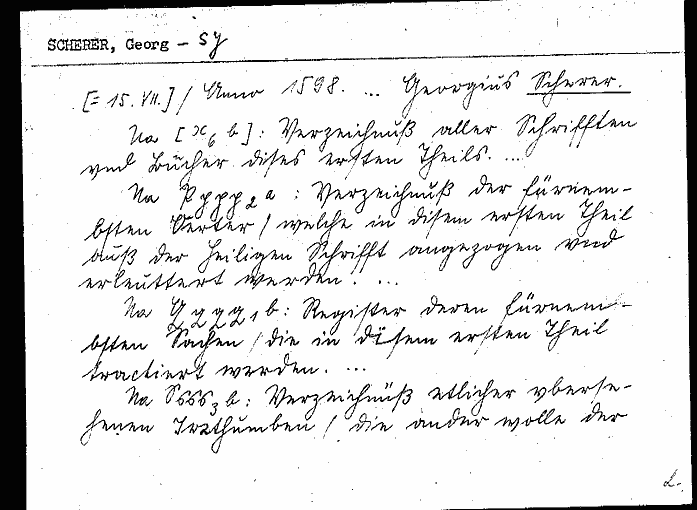 SCHERER, Georg - sy
[= 15. VII.] / Anno 1598. ... Georgius Scherer.
Na [x6 b]: Verzeichnuß aller Schrifften
vnd Bücher dises ersten Theils. ...
Na Pppp2 a : Verzeichnuß der fürnem-
bsten Oerter / welche in disem ersten Theil
auß der Heiligen Schrifft angezogen vnd
erleuttert werden. ...
Na Qqqq1 b: Register deren fürnem-
bsten Sachen / die in disem ersten Theil
tractiert werden. ...
Na Ssss3 b: Verzeichnüß etlicher vberse-
henen Irrthumben / die ander wolle der